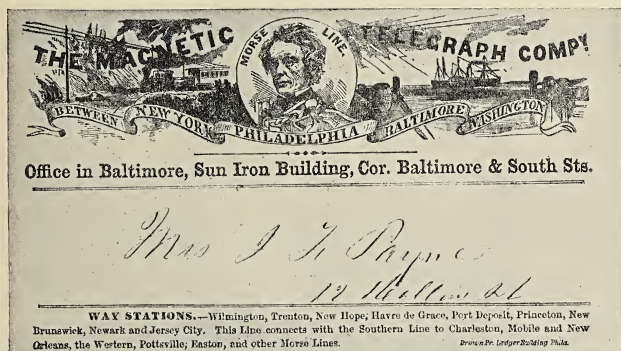 THE MAGNETIC TELEGRAPH COMPY
MORSE LINE.
BETWEEN NEW YORK PHILADELPHIA BALTIMORE WASHINGTON
Office in Baltimore, Sun Iron Building, Cor. Baltimore & South Sts.
Mrs J H Payne
12 St
WAY STATIONS.—Wilmington, Trenton, New Hope, Havre de Grace, Port Deposit, Princeton, New
Brunswick, Newark and Jersey City. This Line connects with the Southern Line to Charleston, Mobile and New
Orleans, the Western, Pottsville, Easton, and other Morse Lines.
Brown Pr. Ledger Building Phila.